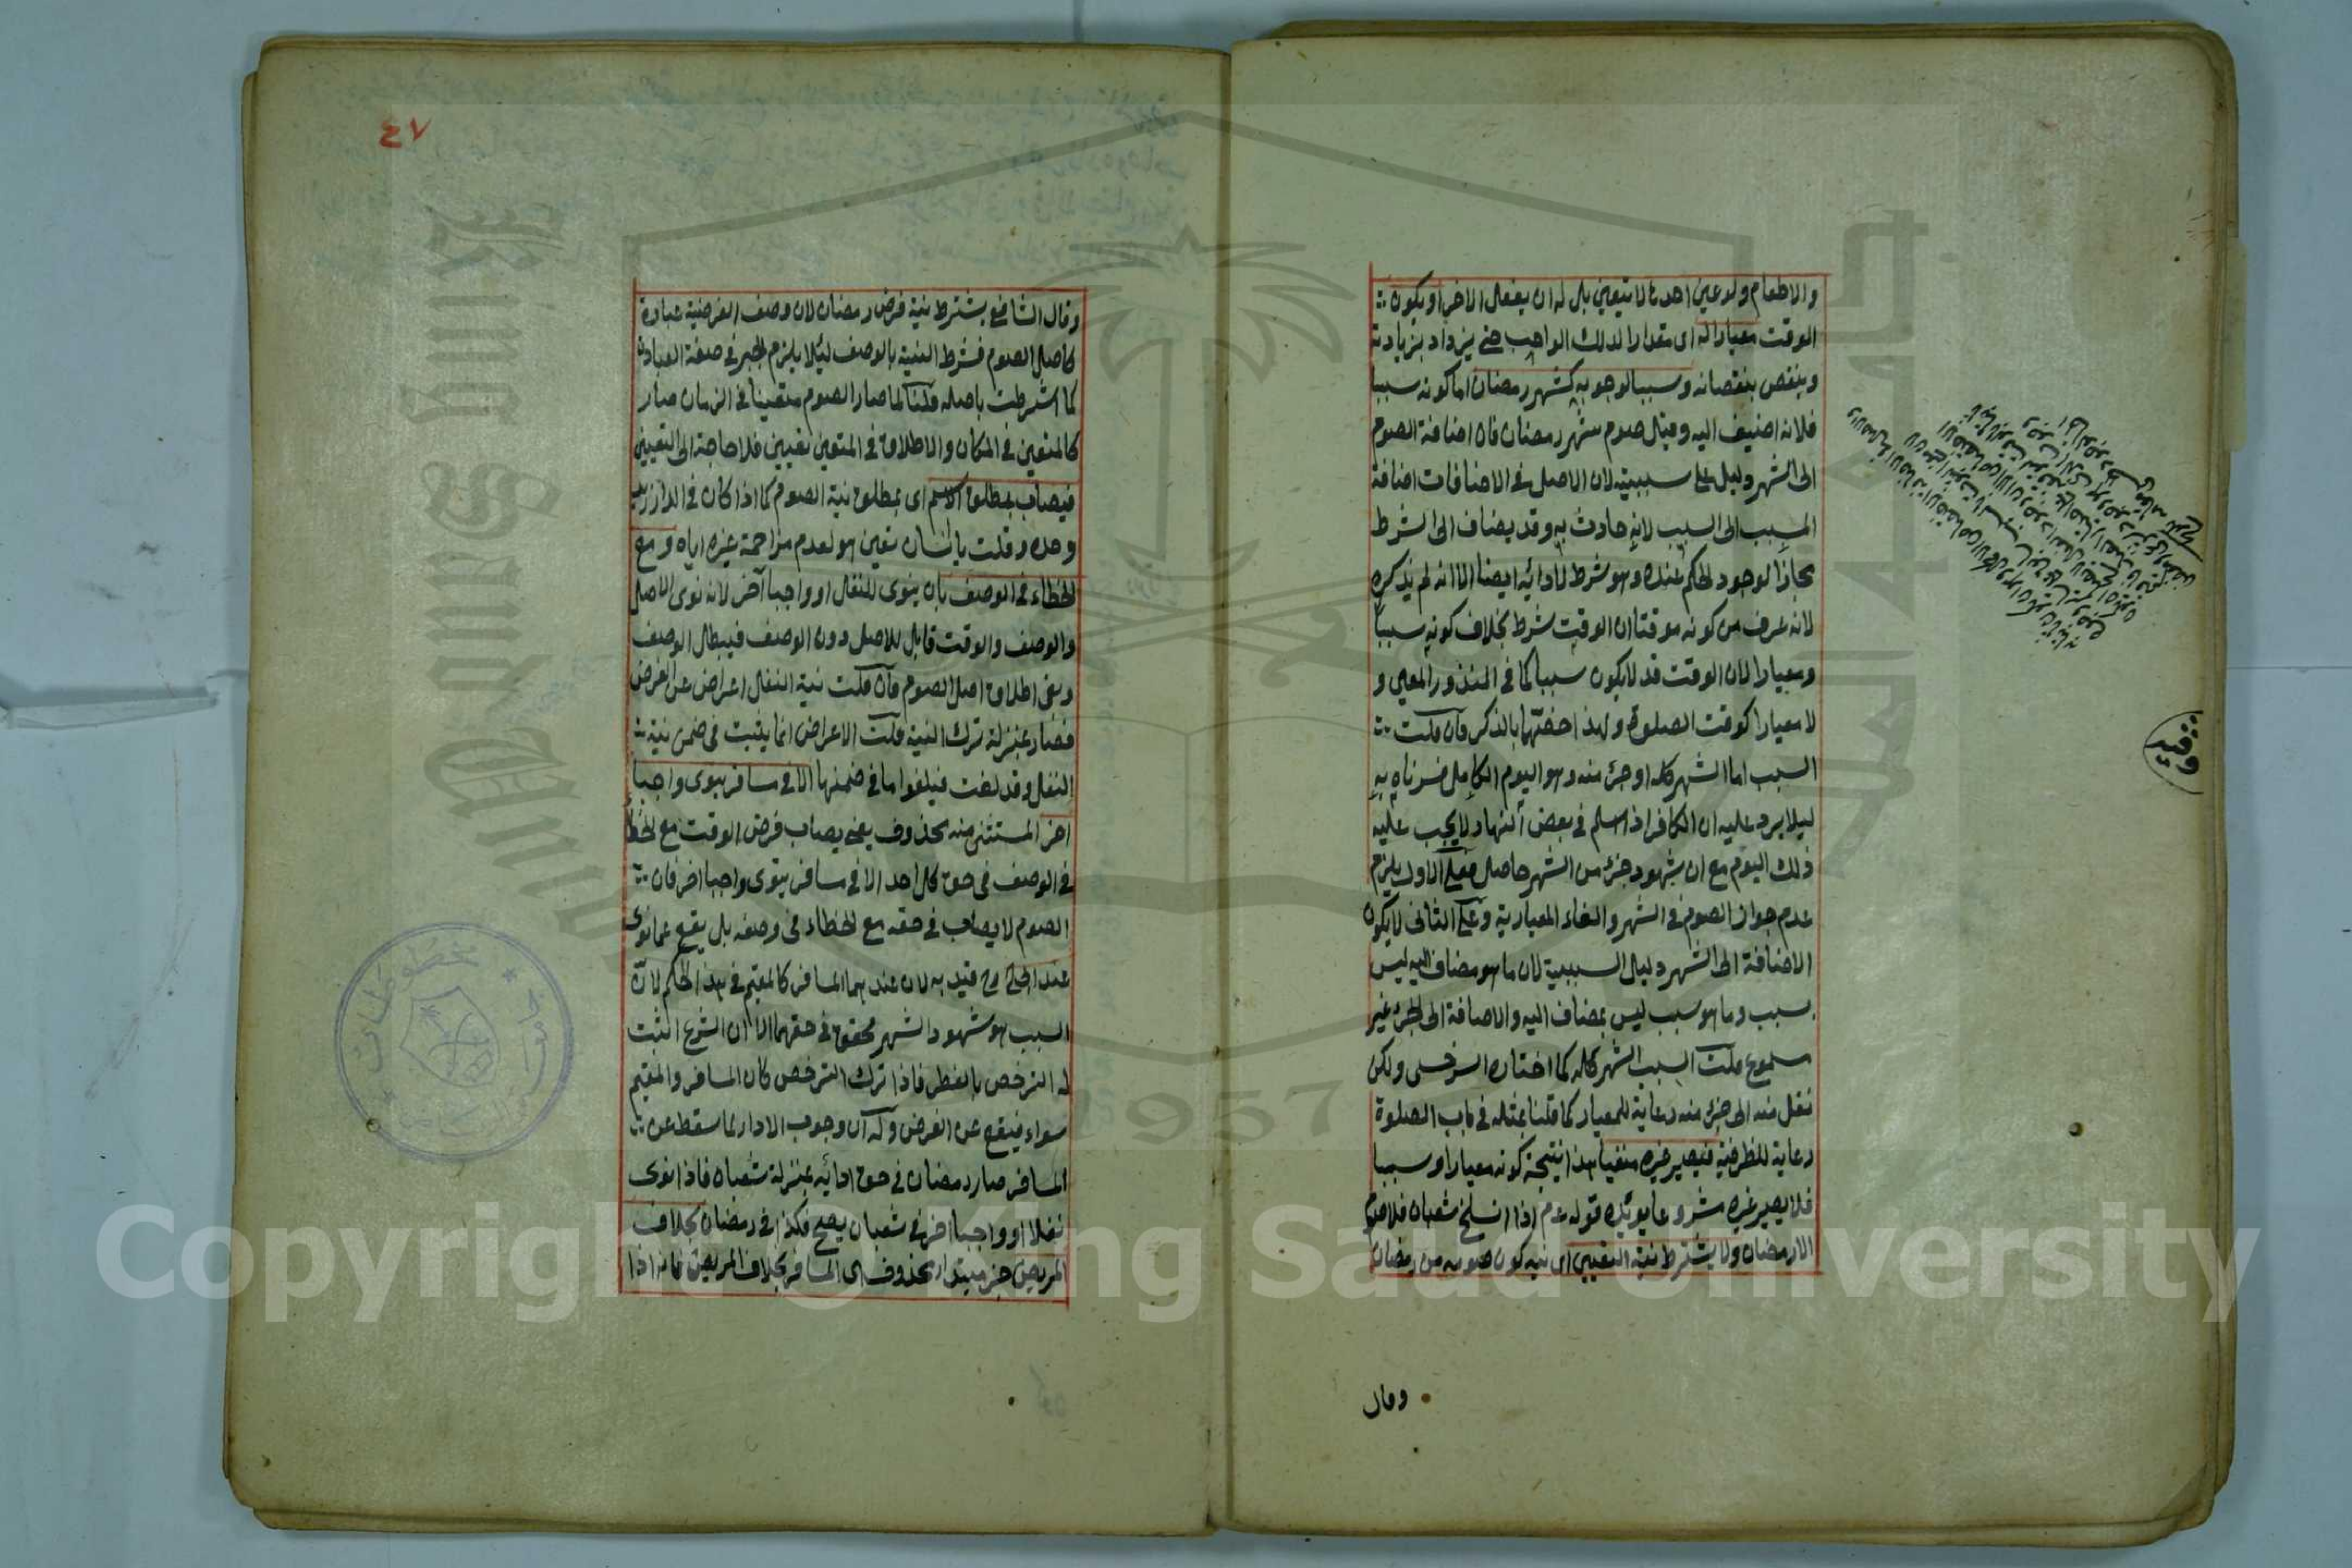 والاطعام ولو عين احدها لا يتعين بل له ان يفعل الاخر او يكون
الوقت معيارا له اى مقدارا لذلك الواجب حتى يزداد بزيادته
وينقص بنقصانه وسببا لوجوبه كشهر رمضان اما كونه سببا
فلانه اضيف اليه وقيال صوم شهر رمضان فان اضافة الصوم
الى الشهر دليل على سببيته لان الاصل فى الاضافات اضافة
المسبب الى السبب لانه حادث به وقد يضاف الى الشرط
مجازا لوجود الحكم عنده وهو شرط لادائه ايضا الا انه لم يذكره
لانه عرف من كونه موقتا ان الوقت شرط بخلاف كونه سببا
ومعيارا لان الوقت قد لا يكون سببا كما فى المنذور المعين و
لا معيارا كوقت الصلوة ولهذا خصهما بالذكر فان قلت
السبب اما الشهر كله او جزء منه وهو اليوم الكامل فسرناه به
ليلا يرد عليه ان الكافر اذا اسلم فى بعض النهار لا يجب عليه
ذلك اليوم مع ان شهود جزء من الشهر حاصل فعلى الاول يلزم
عدم جواز الصوم فى الشهر والغاء المعيارية وعلى الثانى لا يكون
الاضافة الى الشهر دليل السببية لان ما هو مضاف اليه ليس
بسبب وما هو سبب ليس بمضاف اليه والاضافة الى الجزء غير
مسموع قلت السبب الشهر كله كما اختاره السرخسى ولكن
نقل منه الى جزء منه رعاية للمعيار كما قلنا بمثله فى باب الصلوة
رعاية للظرفية فيصير غيره منفيا هذا نتيجة كونه معيارا وسببا
فلا يصير غيره مشروعا يؤيده قوله عم اذا انسلخ شعبان فلا صوم
الا رمضان ولا يشترط نية التعيين اى نية كون صومه من رمضان
وقال
وقيد
٤٧
وقال الشافعى يشترط نية فرض رمضان لان وصف الفرضية عبادة
كاصل الصوم فشرط النية بالوصف ليلا يلزم الجبر فى صفة العبادة
كما اشترطت باصله قلنا لما صار الصوم متعينا فى الزمان صار
كالمتعين فى المكان والاطلاق فى المتعين تعيين فلا حاجة الى التعيين
فيصاب بمطلق الاسم اى بمطلق نية الصوم كما اذا كان فى الدار زيد
وحده وقلت يا انسان تعين هو لعدم مزاحمة غيره اياه ومع
الخطاء فى الوصف بان ينوى النفل او واجبا آخر لانه نوى الاصل
والوصف والوقت قابل للاصل دون الوصف فيبطل الوصف
وبقى اطلاق اصل الصوم فان قلت نية النفل اعراض عن الفرض
فصار بمنزلة ترك النية قلت الاعراض انما يثبت فى ضمن نية
النفل وقد لغت فيلغوا ما فى ضمنها الا فى مسافر ينوى واجبا
اخر المستثنى منه محذوف يعنى يصاب فرض الوقت مع الخطاء
فى الوصف فى حق كل احد الا فى مسافر ينوى واجبا اخر فان
الصوم لا يصاب فى حقه مع الخطاء فى وصفه بل يقع عما نوى
عند ابى ح قيد به لان عندهما المسافر كالمقيم فى هذا الحكم لان
السبب هو شهود الشهر محقق فى حقهما الا ان الشرع اثبت
له الترخص بالفطر فاذا ترك الترخص كان المسافر والمقيم
سواء فيقع عن الفرض وله ان وجوب الاداء لما سقط عن
المسافر صار رمضان فى حق ادائه بمنزلة شعبان فاذا نوى
نفلا او واجبا اخر فى شعبان يصح فكذا فى رمضان بخلاف
المريض خبر مبتداء محذوف اى المسافر بخلاف المريض فانه اذا
مخطوطات
1957
Copyright © King Saud University